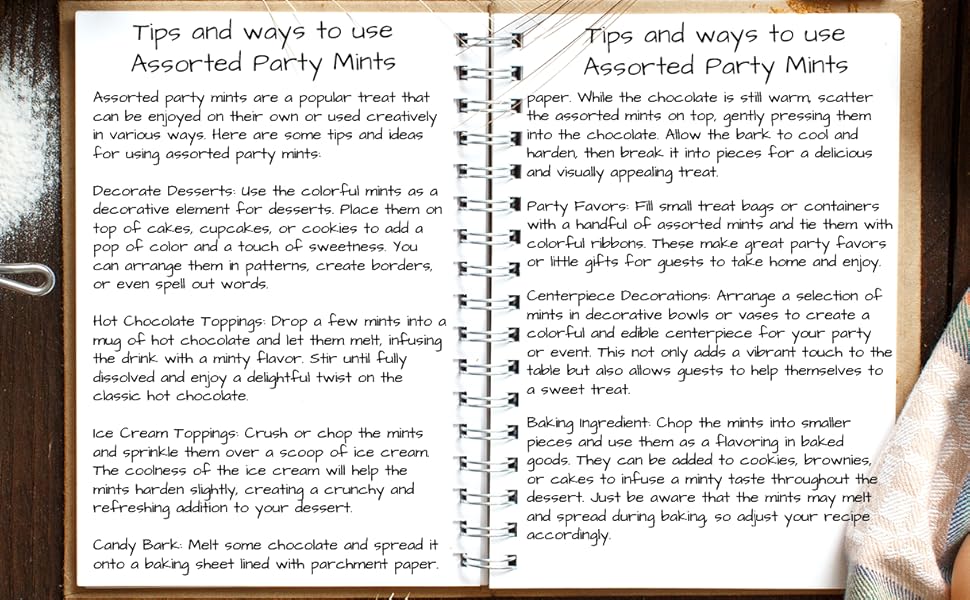 Tips and ways to use
Assorted Party Mints
Assorted party mints are a popular treat that
can be enjoyed on their own or used creatively
in various ways. Here are some tips and ideas
for using assorted party mints:
Decorate Desserts: Use the colorful mints as a
decorative element for desserts. Place them on
top of cakes, cupcakes, or cookies to add a
pop of color and a touch of sweetness. You
can arrange them in patterns, create borders,
or even spell out words.
Hot Chocolate Toppings: Drop a few mints into a
mug of hot chocolate and let them melt, infusing
the drink with a minty flavor. Stir until fully
dissolved and enjoy a delightful twist on the
classic hot chocolate.
Ice Cream Toppings: Crush or chop the mints
and sprinkle them over a scoop of ice cream.
The coolness of the ice cream will help the
mints harden slightly, creating a crunchy and
refreshing addition to your dessert.
Candy Bark: Melt some chocolate and spread it
onto a baking sheet lined with parchment paper.
Tips and ways to use
Assorted Party Mints
paper. While the chocolate is still warm, scatter
the assorted mints on top, gently pressing them
into the chocolate. Allow the bark to cool and
harden, then break it into pieces for a delicious
and visually appealing treat.
Party Favors: Fill small treat bags or containers
with a handful of assorted mints and tie them with
colorful ribbons. These make great party favors
or little gifts for guests to take home and enjoy.
Centerpiece Decorations: Arrange a selection of
mints in decorative bowls or vases to create a
colorful and edible centerpiece for your party
or event. This not only adds a vibrant touch to the
table but also allows guests to help themselves to
a sweet treat.
Baking Ingredient: Chop the mints into smaller
pieces and use them as a flavoring in baked
goods. They can be added to cookies, brownies,
or cakes to infuse a minty taste throughout the
dessert. Just be aware that the mints may melt
and spread during baking, so adjust your recipe
accordingly.